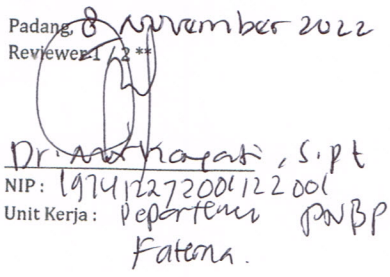 Padang, 8 November 2022
Reviewer 1 / 2 **
Dr. , S.Pt
NIP : 197412272001122001
Unit Kerja : Departemen PNBP
Faterna.